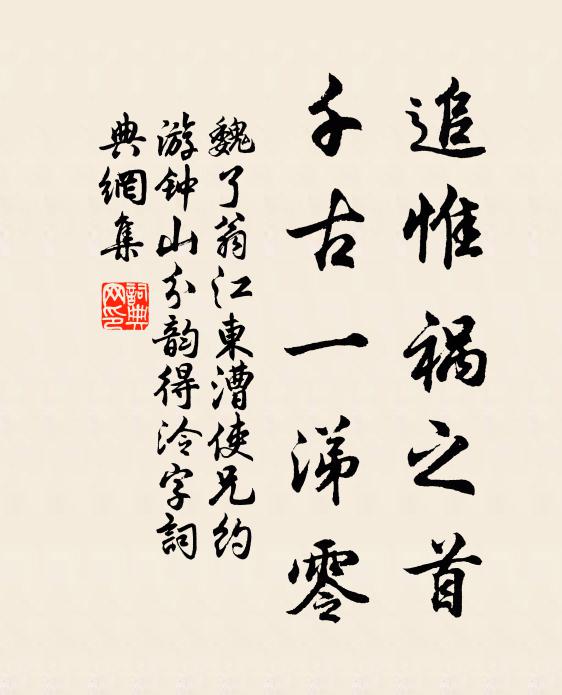 追惟祸之首
千古一涕零
魏了翁江東漕使兄约
游钟山分韵得泠字詞
典網集
詞典网印